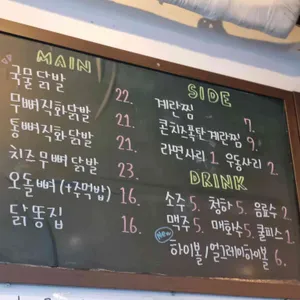 MAIN
국물닭발 22.
무뼈직화닭발 21.
통뼈직화닭발 21.
치즈무뼈닭발 23.
오돌뼈 (+주먹밥) 16.
닭똥집 16.
SIDE
계란찜 7.
콘치즈폭탄계란찜 9.
라면사리 1. 우동사리 2.
DRINK
소주 5. 청하 5. 음료수 2.
맥주 5. 매화수 5. 쿨피스 1.
New
하이볼 / 얼그레이하이볼 6.